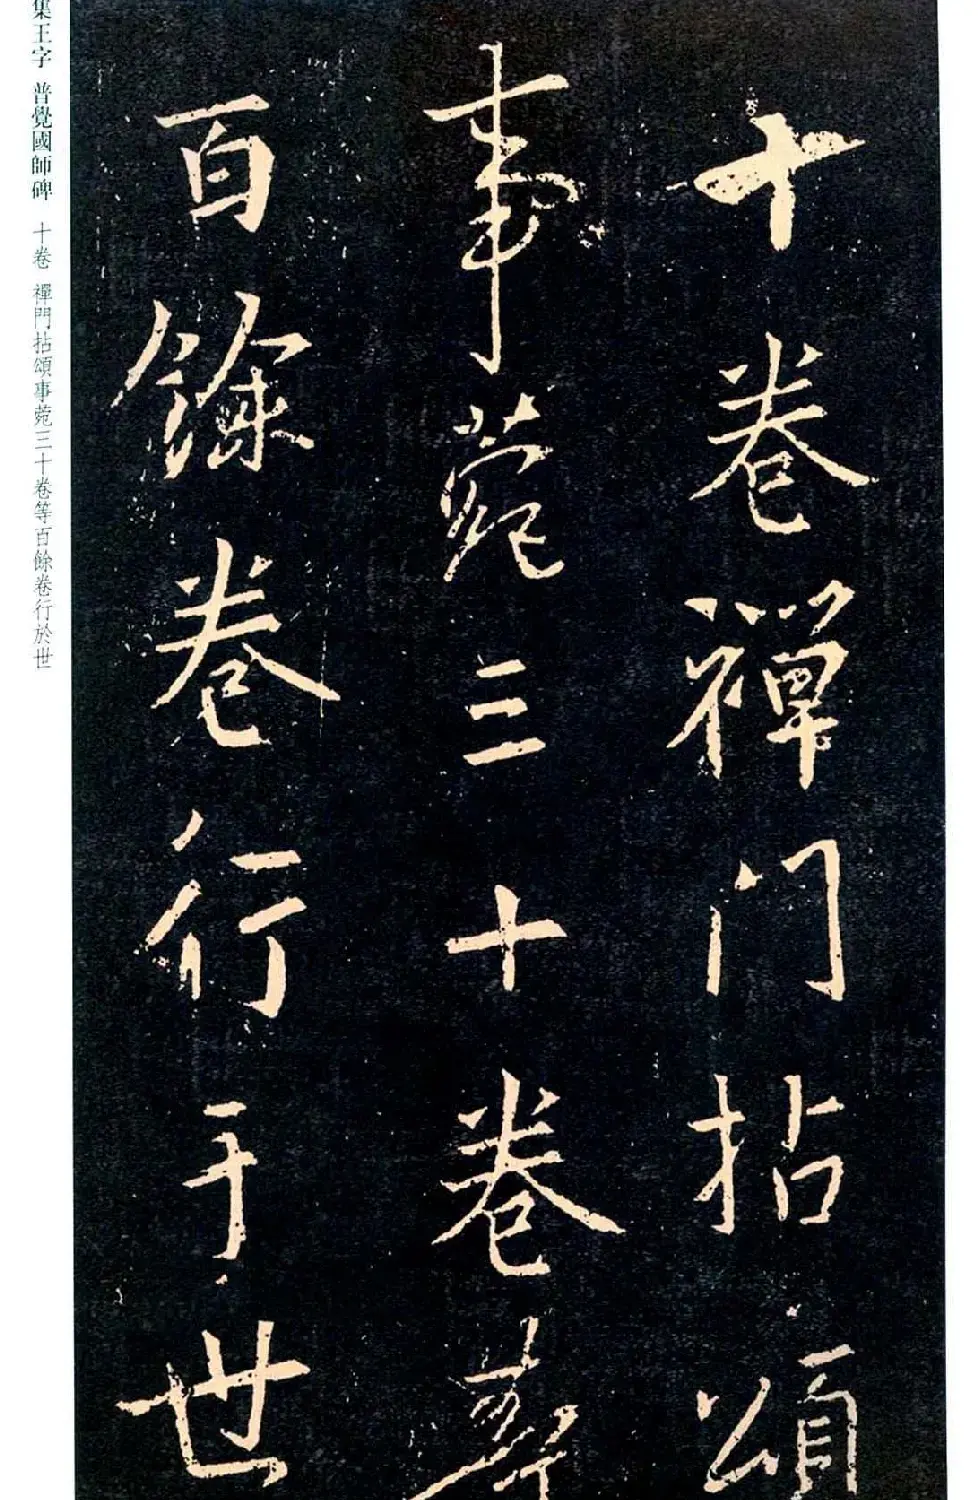 十卷禪门拈頌
事菀三十卷等
百餘卷行于世
集王字 普覺國師碑 十卷 禪門拈頌事菀三十卷等百餘卷行於世